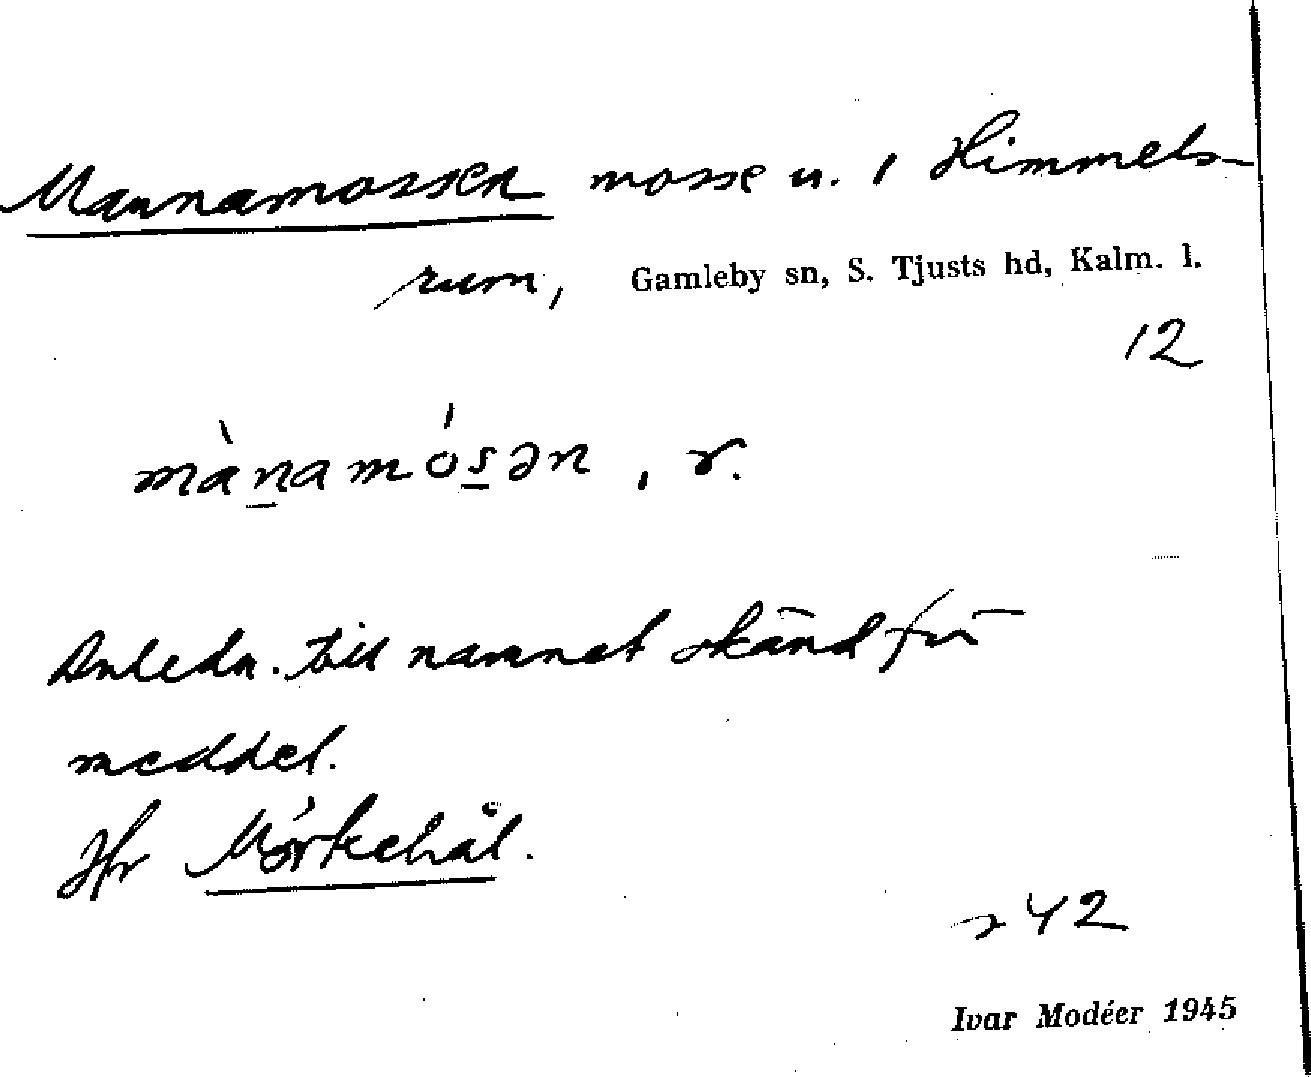 Mannamossen mosse u. i Himmels-
rum, Gamleby sn, S. Tjusts hd, Kalm. l.
12
mànamósən, r.
Anledn. till namnet okänd för
meddel.
Jfr Mörkehål.
242
Ivar Modéer 1945